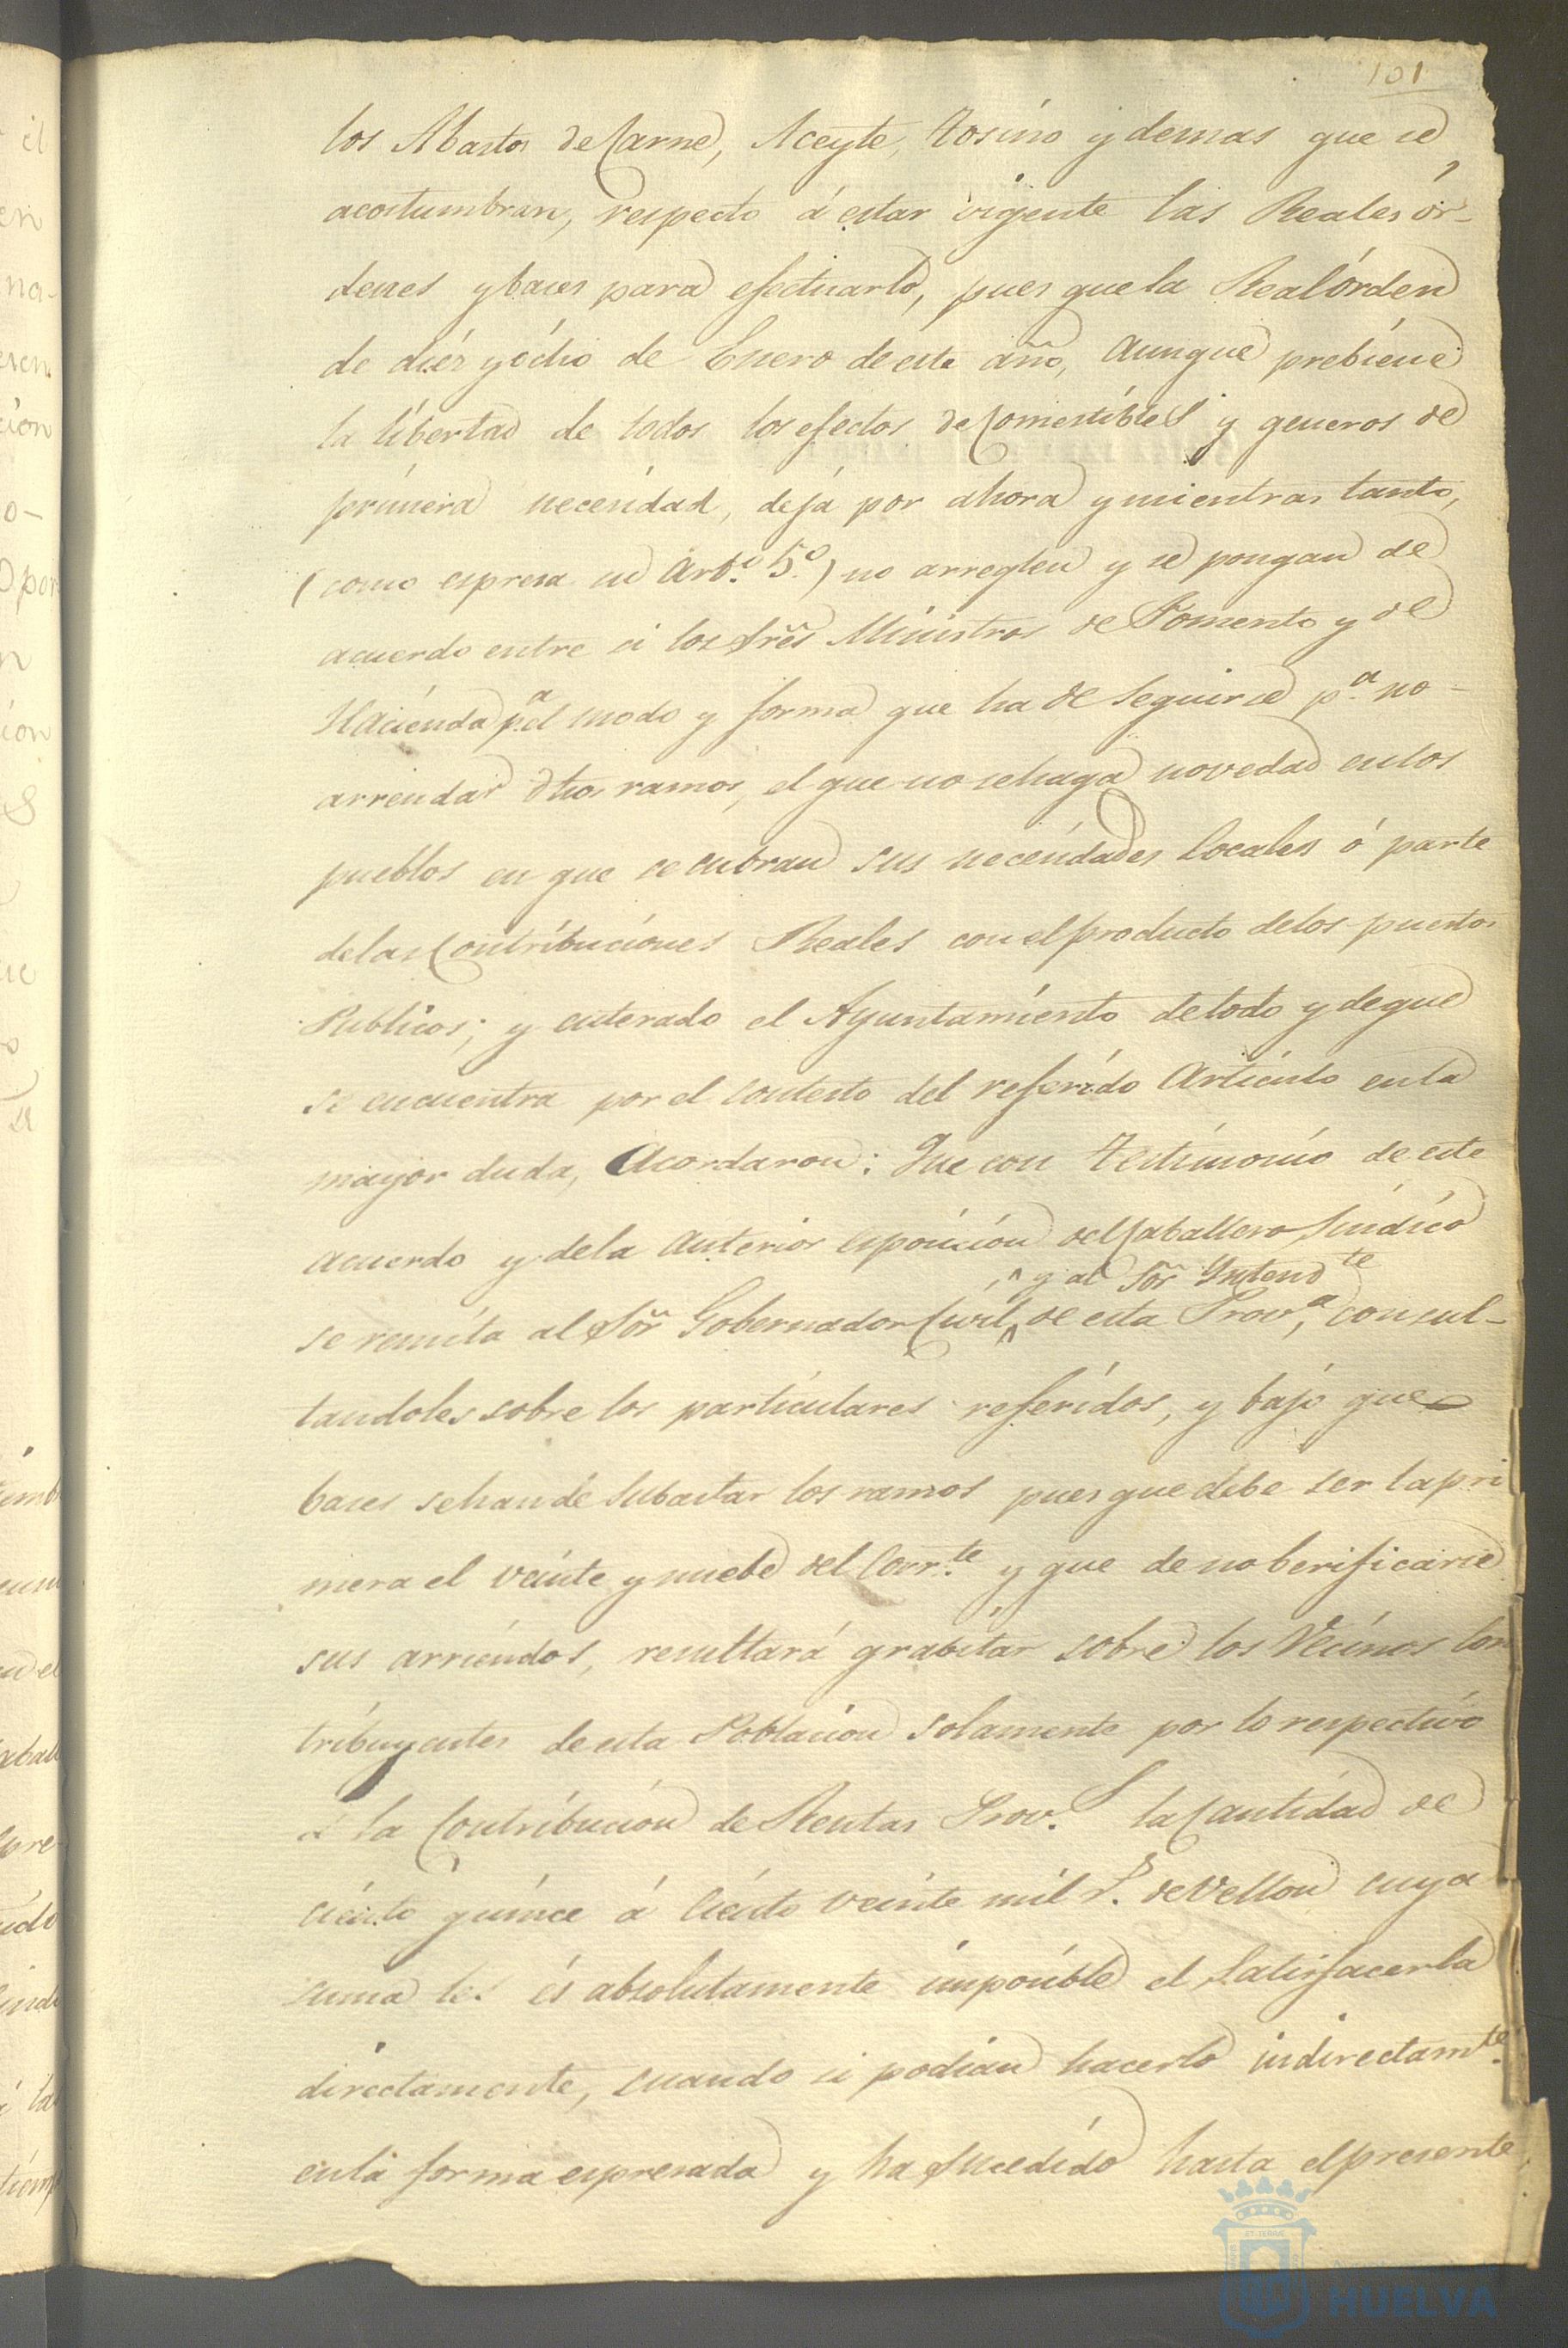 101
los Abastos de Carne, Aceyte, Tosino y demas que se
acostumbran, respecto á estar vigente las Reales ór-
denes y bases para efectuarlo, pues que la Real órden
de diéz y ócho de Enero de este año, aunque prebiene
la libertad de todos los efectos de Comestibles y generos de
primera necesidad, deja por ahora y mientras tanto,
(como espresa su Art.º 5.º) no arreglen y se pongan de
acuerdo entre si los Sres Ministros de Fomento y de
Hacienda p.ª el modo y forma que ha de seguirse p.ª no-
arrendar dhos ramos, el que no se haga novedad en los
pueblos en que se cubran sus necesidades locales ó parte
de las Contribuciones Reales con el producto de los puestos
Publicos; y enterado el Ayuntamiento de todo y de que
se encuentra por el contesto del referido Articulo en la
mayor duda, Acordaron: Que con Testimonio de este
acuerdo y de la anterior esposicion del Caballero Sindico
^ y al Sor Intend.te
se remita al Sor Gobernador Civil ^ de esta Prov.ª, consul-
tandoles sobre los particulares referidos, y bajo que
bases se han de subastar los ramos pues que debe ser la pri
mera el veinte y nuebe del Corr.te y que de no berificarse
sus arriendos, resultará grabitar sobre los Vecinos Con
tribuyentes de esta Poblacion solamente por lo respectivo
á la Contribucion de Rentas Prov.s la Cantidad de
ciento quince á ciento veinte mil r.s de Vellon cuya
suma les és absolutamente imposible el satisfacerla
directamente, cuando si podian hacerlo indirectam.te
en la forma espresada y ha sucedido hasta el presente,
HUELVA